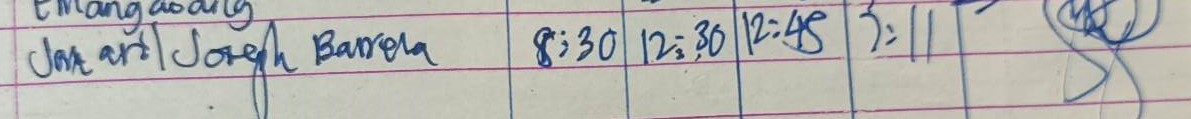 Emangaoang
Jom aril Joseph Barrela 8:30 12:30 12:45 3:11